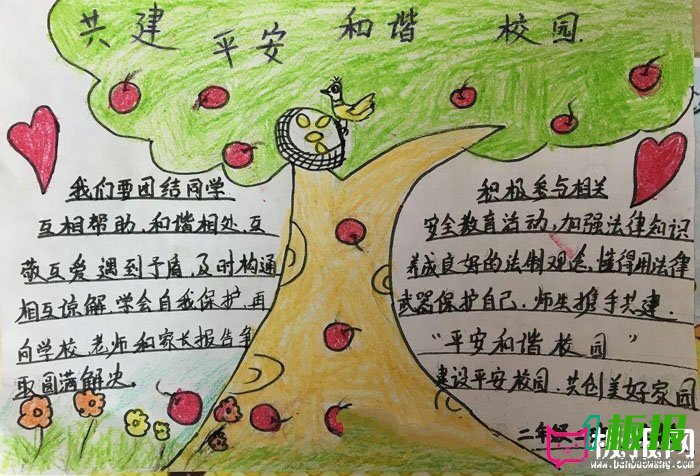 共建 平安 和谐 校园.
我们要团结同学
互相帮助、和谐相处、互
敬互爱、遇到矛盾,及时沟通
相互谅解.学会自我保护,再
向学校、老师和家长报告争
取圆满解决.
积极参与相关
安全教育活动,加强法律知识
养成良好的法制观念,懂得用法律
武器保护自己.师生携手共建.
“平安和谐校园”
建设平安校园.共创美好家园
板报网
www.banbaowang.com